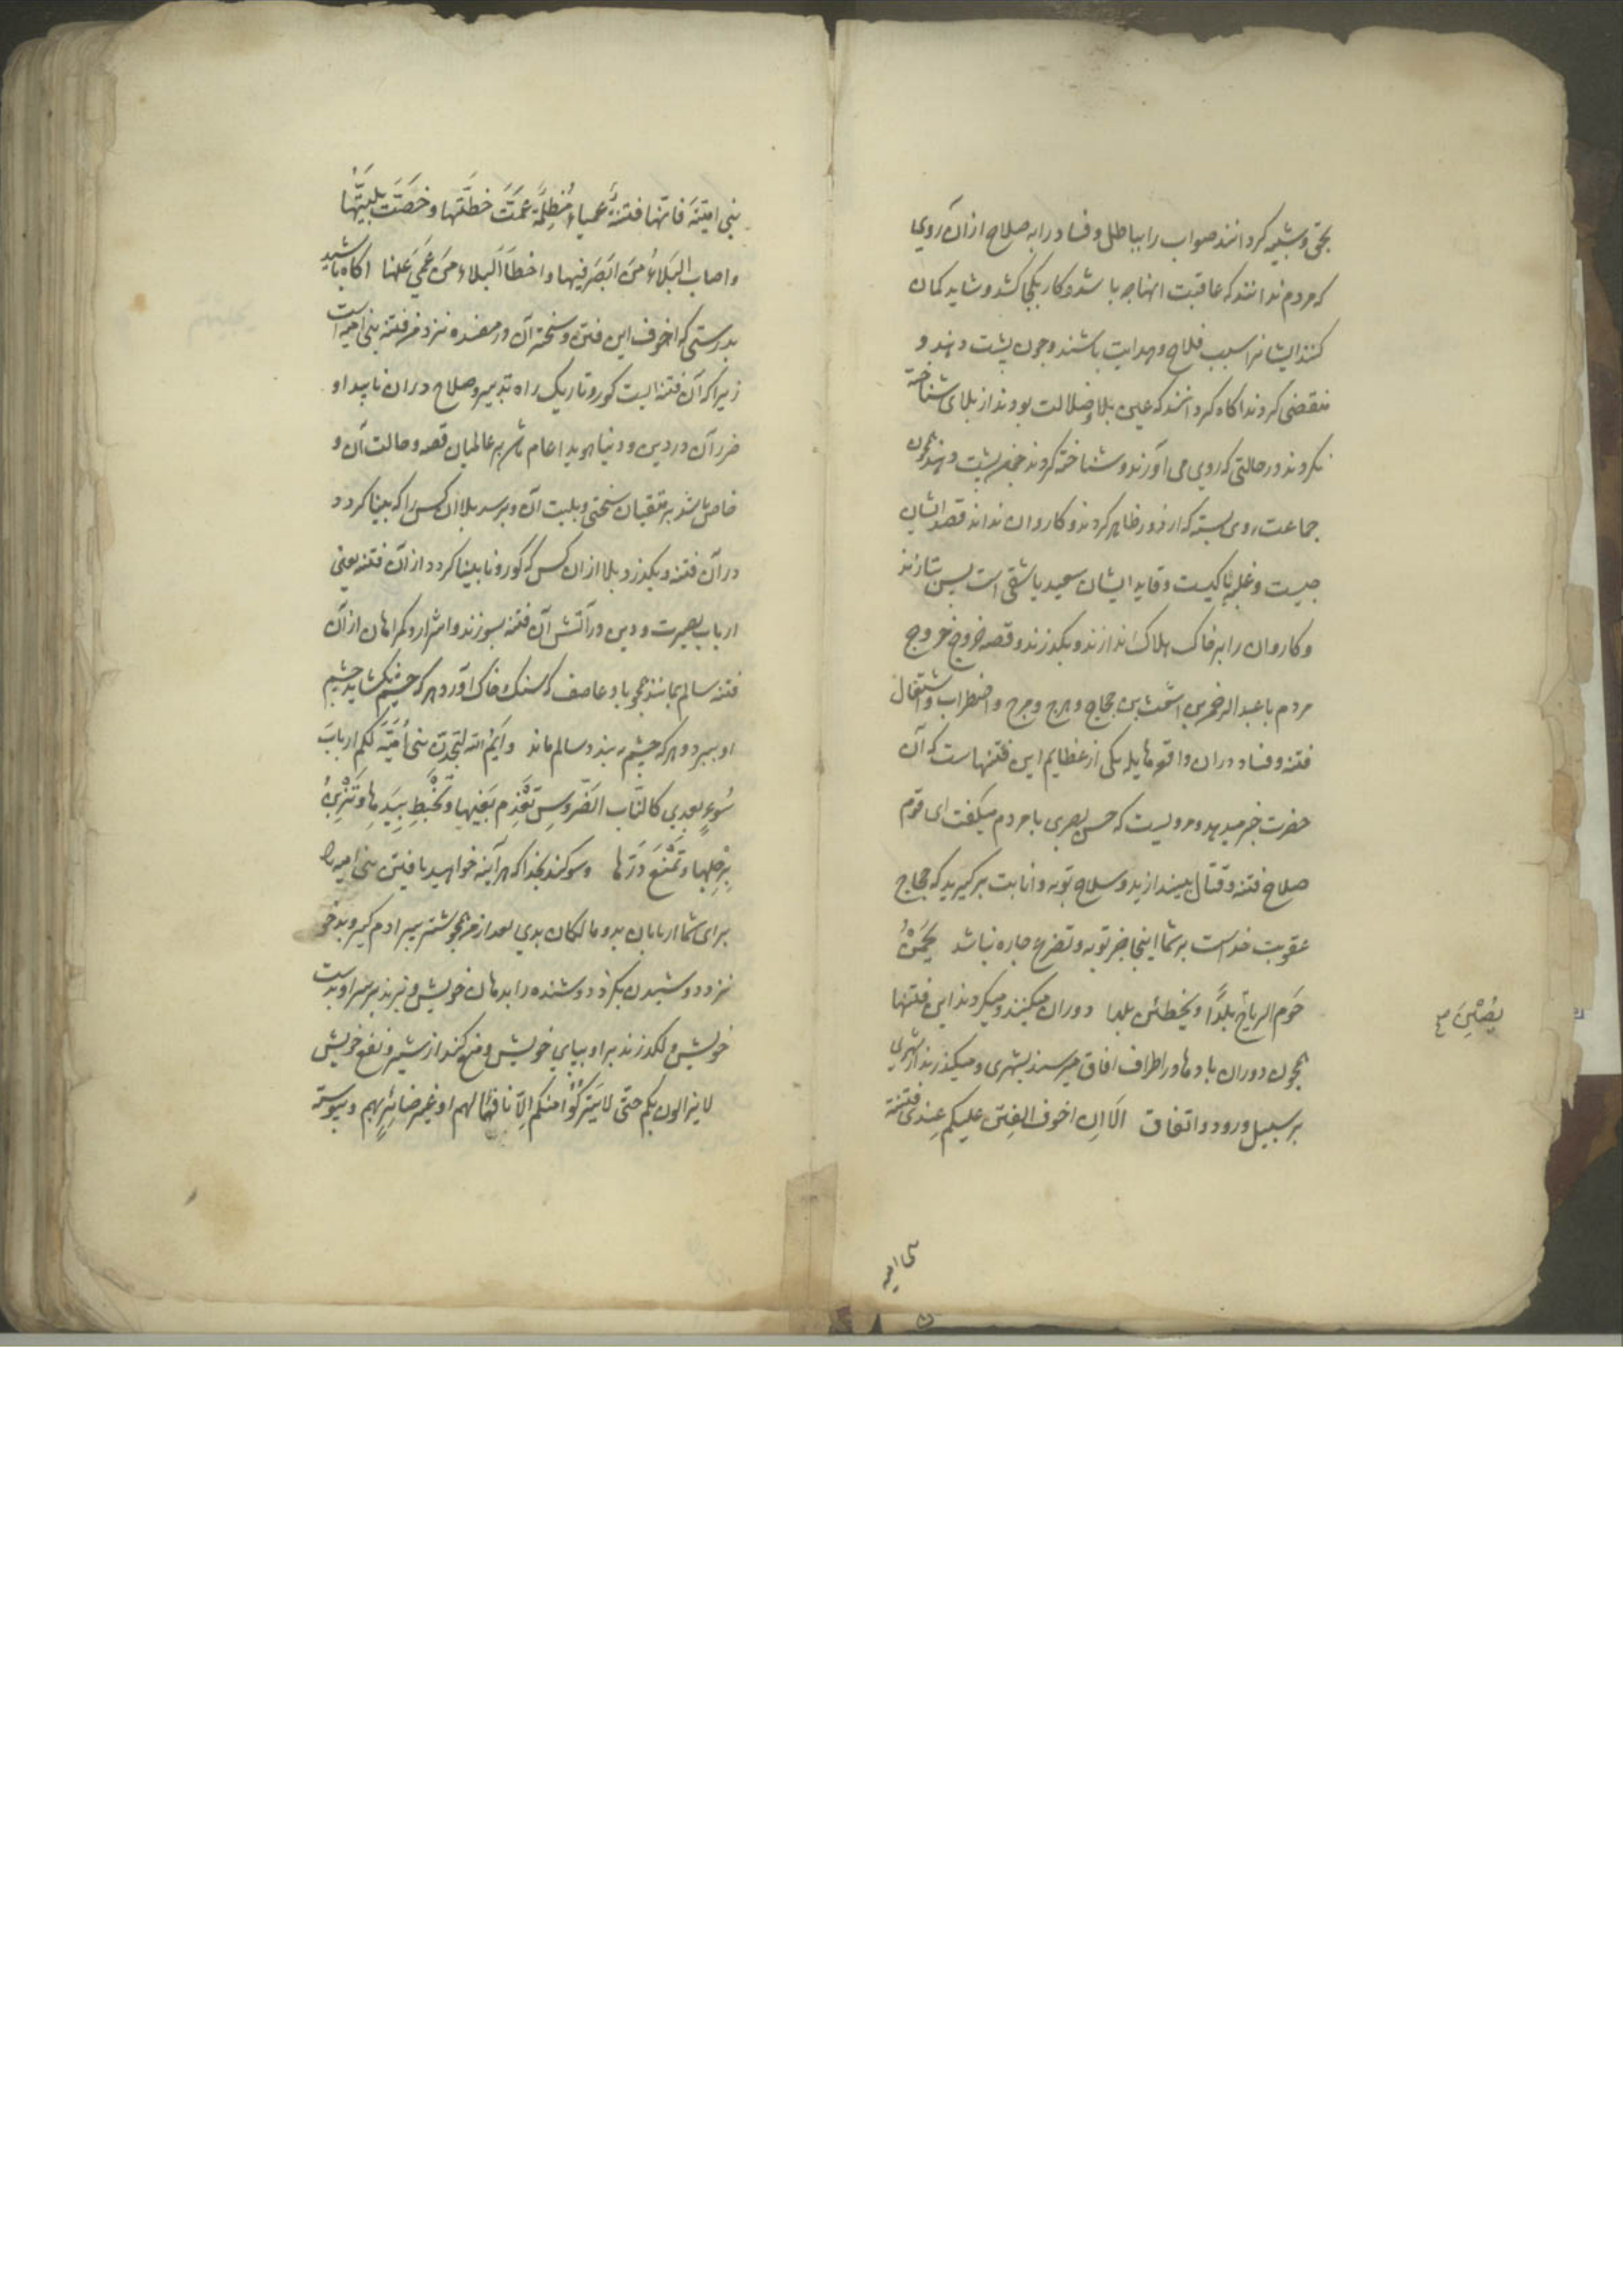 بحق و شبیه کردانند صواب را بباطل و فساد را به صلاح از آن روی
که مردم ندانند که عاقبت انها چه باشد و کار بکجا کشد و شاید کمان
کنند ایشانرا سبب فلاح و هدایت باشند و چون پشت دهند و
منقضی کردند اکاه کردانند که عین بلا و ضلالت بودند از بلای شناخته
نکردند در حالتی که روی می آورند و شناخته کردند چون پشت دهند همچون
جماعت روی بسته که از دور ظاهر کردند و کاروان نداند قصد ایشان
چیست و غلبه با کیست و قاید ایشان سعید یا شقی است پس بتازند
و کاروان را بر خاک هلاک اندازند و بکذرند و قصه خروج
مردم با عبد الرحمن بن اشعث بن حجاج و هرج و مرج و اضطراب و اشتعال
فتنه و فساد در ان واقعه هایله یکی از عظایم این فتنهاست که آن
حضرت خبر میدهد و مرویست که حسن بصری با مردم میکفت ای قوم
صلاح فتنه و قتال بیندازید و سلاح توبه و انابت برکیرید که حجاج
عقوبت خداست بر شما اینجا جز توبه و تضرع چاره نباشد یحمن
حوم الریاح بلدا و یخطئن بلدا دوران میکنند و میکردند این فتنها
همچون دوران بادها در اطراف افاق میرسند بشهری و میکذرند از شهری
بر سبیل ورود و اتفاق الا ان اخوف الفتن علیکم عندی فتنة
یصبن
بنی امیه
بنی امیة فانها فتنة عمیاء مظلمة عمت خطتها و خصت بلیتها
و اصاب البلاء من ابصر فیها و اخطأ البلاء من عمی عنها اکاه باشید
بدرستی که اخوف این فتن و سخت آن در مفسده نزد من فتنه بنی امیه است
زیرا که آن فتنه ایست کور و تاریک راه تدبیر و صلاح در ان ناپیدا و
ضرر آن در دین و دنیا هویدا عام باشد بر عالمیان قصه و حالت آن و
خاص باشد بر متقیان سختی و بلیت آن و برسد بلا ان کس را که بینا کردد
در آن فتنه و بکذرد بلا از ان کس که کور و نابینا کردد از آن فتنه یعنی
ارباب بصیرت و دین در آتش آن فتنه بسوزند و اشرار و کمراهان از آن
فتنه سالم بمانند همچو باد عاصف که سنک و خاک آورد هر که چشم بکشاید چشم
او ببرد و هر که چشم ببندد سالم ماند و ایم الله لتجدن بنی امیة لکم ارباب
سوء بعدی کالناب الضروس تعذم بفیها و تخبط بیدها و تزبن
برجلها و تمنع درها و سوکند بخدا که هر آینه خواهید یافتن بنی امیه را
برای شما اربابان بد و مالکان بدی بعد از من همچو شتر پیر ادم کیر و بدخو
نزد دوشیدن بکزد دوشنده را بدهان خویش و بزند بر سر او بدست
خویش و لکد زند بر او بپای خویش و منع کند از شیر و نفع خویش
لا یزالون بکم حتی لا یترکوا منکم الا نافعا لهم او غیر ضائر بهم و پیوسته